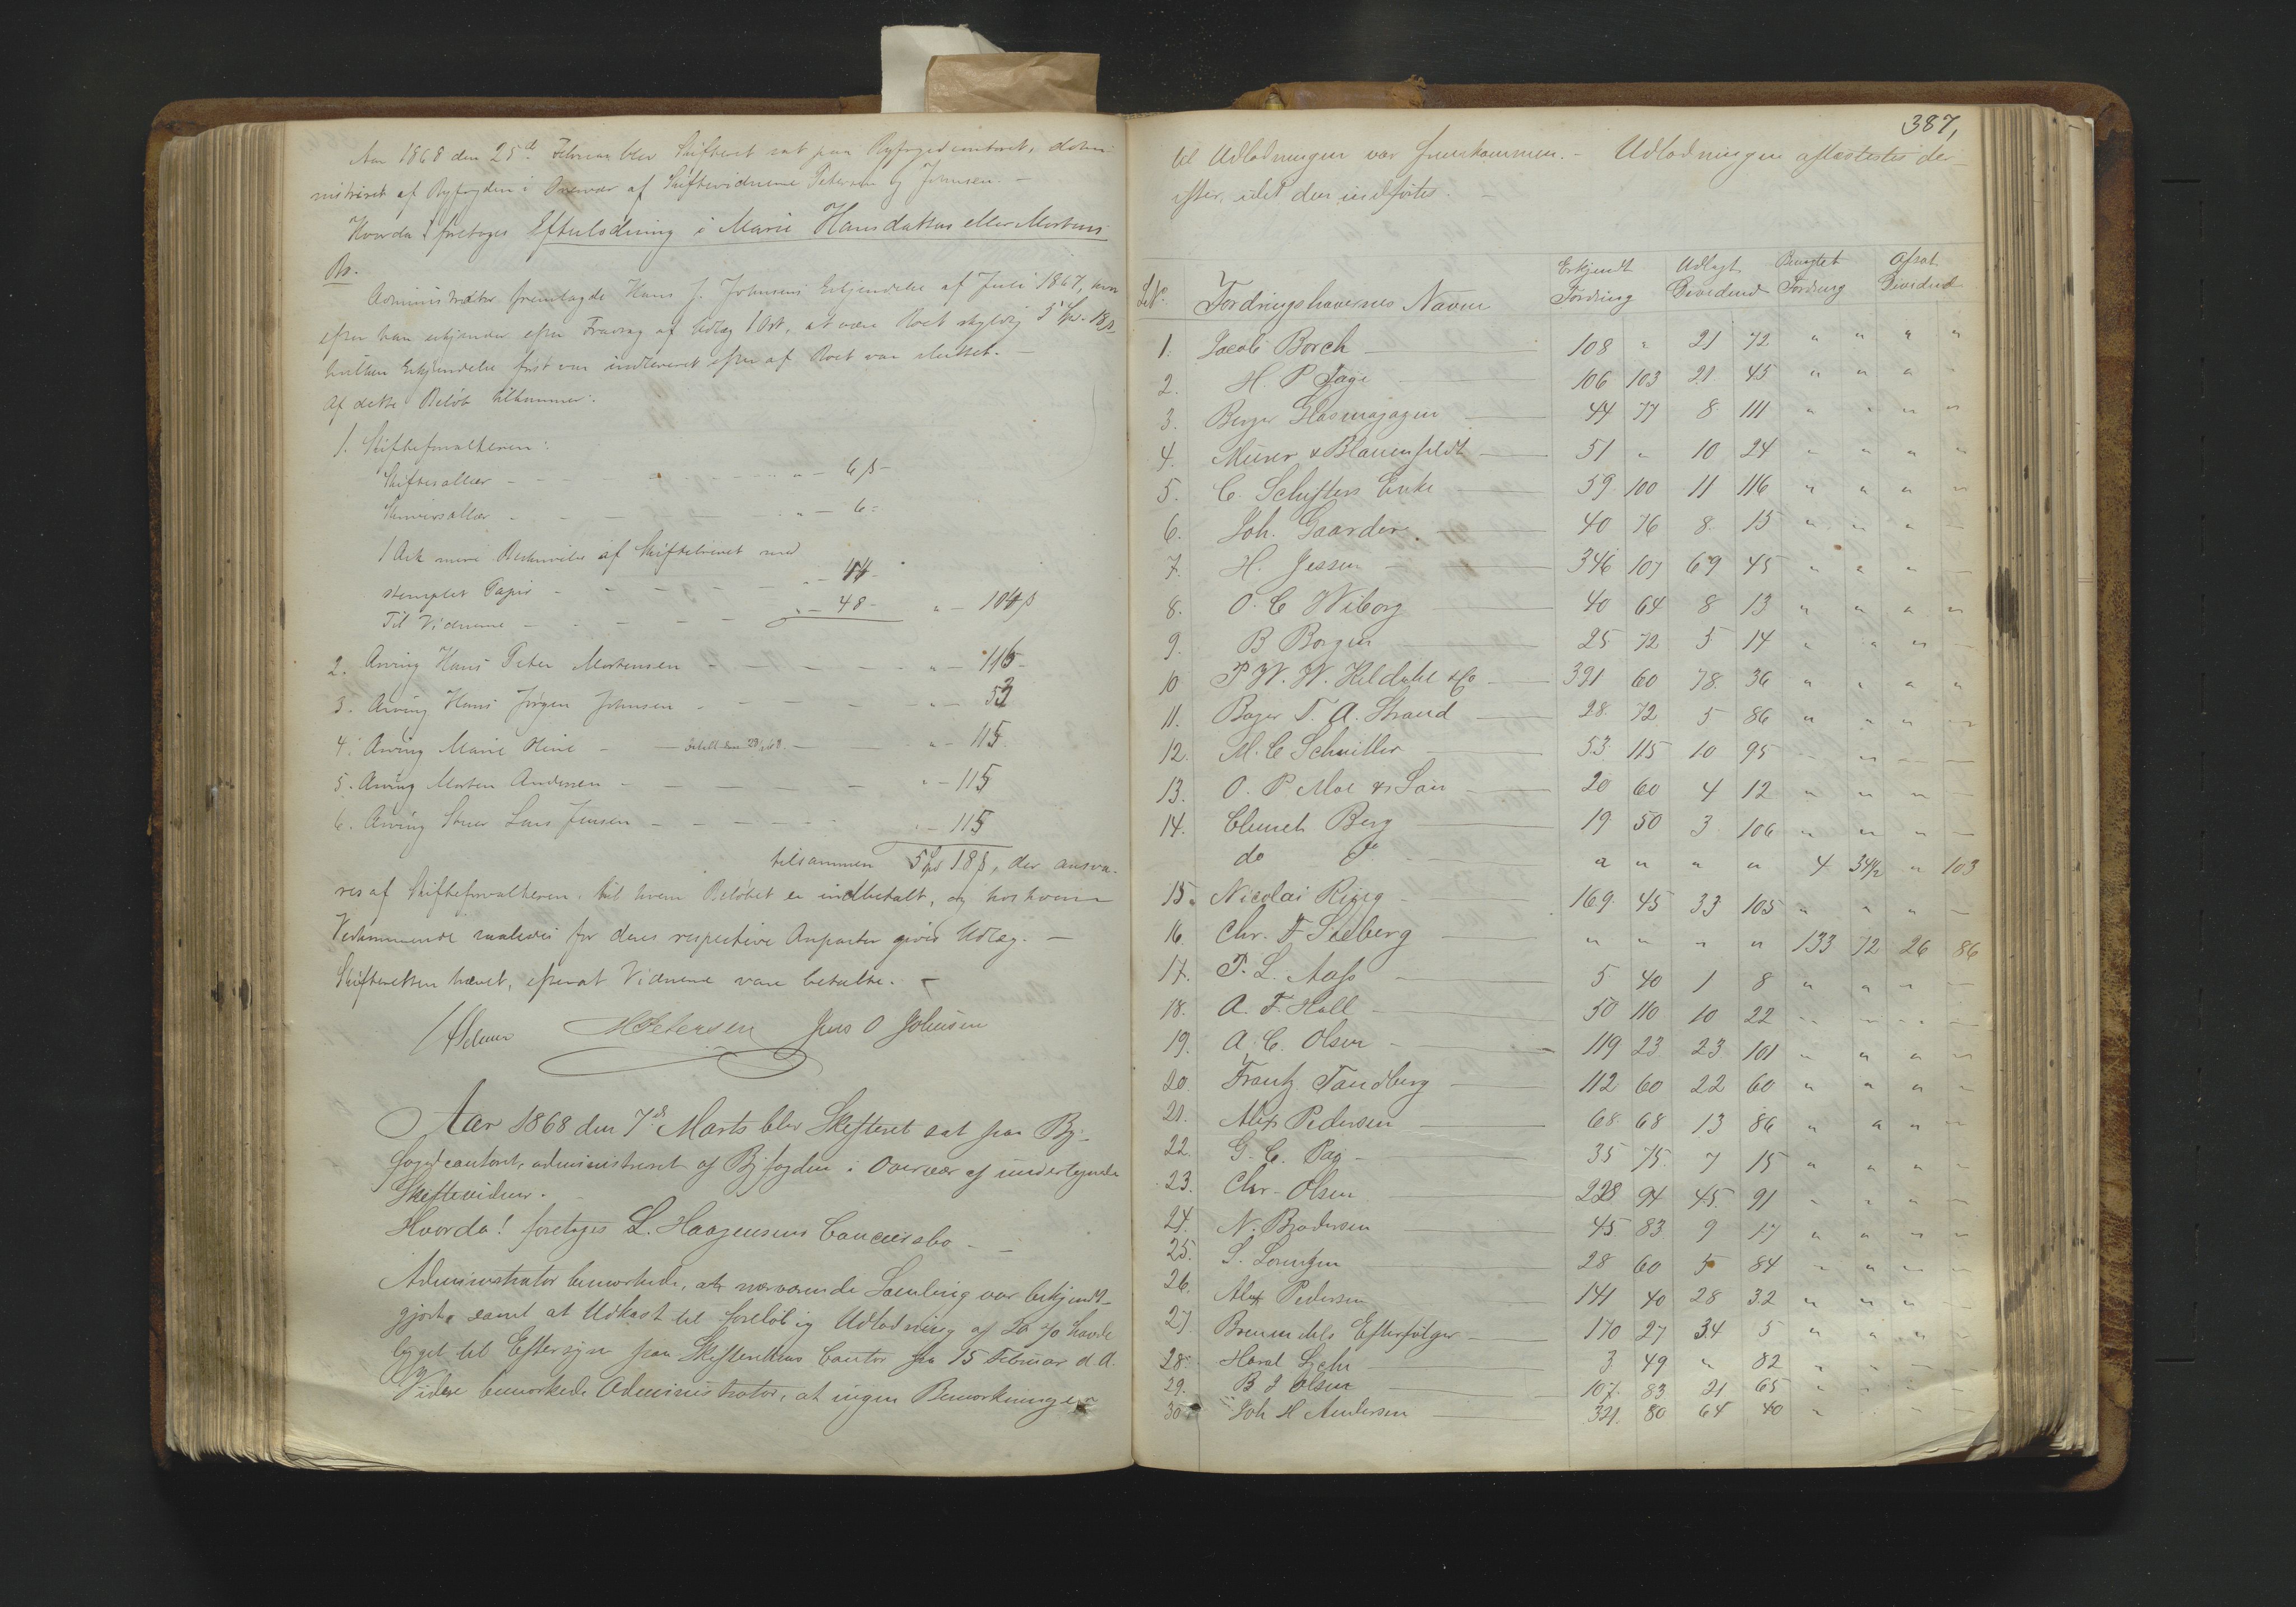 Aar 1868 den 25de Februar blev Skifteret sat paa Byfogedcontoret, admi-
nistreret af Byfogden i Overvær af Skiftevidnerne Petersen og Johnsen. —
Hvorda! foretoges Efterlodning i Marie Hansdatters eller Mortens
Bo.
Administrator fremlagde Hans J. Johnsens Erkjendelse af Juli 1867, hvor
efter han erkjender efter Fradrag af Udlæg 1 Ort, at være Boet skyldig 5 Spd. 18 ß
hvilken Erkjendelse først var indleveret efter at Boet var sluttet. —
Af dette Beløb tilkommer:
1. Skifteforvalteren:
Skiftesallær — — — „ — 6 ß —
Skriversallær — — — „ — 6 =
1 Ark mere Beskrivelse af Skiftebrevet med
stemplet Papir — — — „ — 44 —
Til Vidnerne — — — „ — 48 — „ — 104 ß
2. Arving Hans Peter Mortensen — — — „ — 115 —
3. Arving Hans Jørgen Johnsen — — — „ — 53
4. Arving Marie Stine — — — „ — 115
5. Arving Morten Andersen — — — „ — 115
6. Arving Lars Jensen — — — „ — 115
tilsammen 5 Spd 18 ß, der ansva-
res af Skifteforvalteren, til hvem Beløbet er indbetalt, og hos hvem
Vedkommende saaledes for deres respective Anparter gives Udlæg. —
Skifteretten hævet, efterat Vidnerne vare betalte. —
HPetersen Jens O Johnsen
Aar 1868 den 7de Marts blev Skifteret sat paa By-
fogedcontoret, administreret af Byfogden i Overvær af undertegnede
Skiftevidner.
Hvorda! foretoges L. Haagensens Concursbo —
Administrator bemærkede, at nærværende Samling var bekjendt-
gjort, samt at Udkast til foreløbig Udlodning af 20 % havde
ligget til Eftersyn paa Skifterettens Contor fra 15 Februar d. A.
Videre bemærkede Administrator, at ingen Bemærkninger
387,
til Udlodningen var fremkommen. — Udlodningen afløstes der-
efter, idet den indførtes. —
Lb No. Fordringshavernes Navne Erkjendt Fordring Udlagt Dividend Benægtet Fordring Afsat Dividend
1. Jacob Borch — 108 „ 21 72 „ „ „ „
2. H. P — 106 103 21 45 „ „ „ „
3. Berger Glasmagazin — 44 77 8 111 „ „ „ „
4. & Blauenfeldt — 51 „ 10 24 „ „ „ „
5. C. Schifters Enke — 59 100 11 116 „ „ „ „
6. Joh. Gaarder. — 40 76 8 15 „ „ „ —
7. H. Jessen — 346 107 69 45 „ „ „ —
8. O. C Wiborg — 40 64 8 13 „ „ „ „
9. B Borgen — 25 72 5 14 „ „ „ —
10 P. W. W. Kildahl & Co — 391 60 78 36 „ „ „ „
11. Bager T. A. Strand — 28 72 5 86 „ „ „ —
12. M. C Schnitler — 53 115 10 95 — „ — —
13. O. P. Moe & Søn — 20 60 4 12 „ „ „ —
14. Clement Berg — 19 50 3 106 „ „ „ —
do do — „ „ „ „ 4 34½ „ 103
15. Nicolai Ring — 169 45 33 105 „ „ „ —
16. Chr. F Seeberg — „ „ „ „ 133 72 26 86
17. P. L. Aass — 5 40 1 8 „ „ — —
18. A. F. Hall — 50 110 10 22 — — — —
19. A. C. Olsen — 119 23 23 101 — „ „ „
20. Frantz Tandberg — 112 60 22 60 „ „ „ —
21. Alex Pedersen — 68 68 13 86 „ „ „ —
22. G. C. — 35 75 7 15 „ „ „ —
23. Chr. Olsen — 228 94 45 91 „ „ „ —
24. N. — 45 83 9 17 „ „ „ „
25. S. Lorentzen — 28 60 5 84 — „ — —
26. Alex Pedersen — 141 40 28 32 „ „ „ —
27. Efterfølger — 170 27 34 5 „ „ „ —
28. — 3 49 „ 82 „ — — —
29. B J Olsen — 107 83 21 65 „ „ — —
30 Joh H Andersen — 321 80 64 40 „ — — —